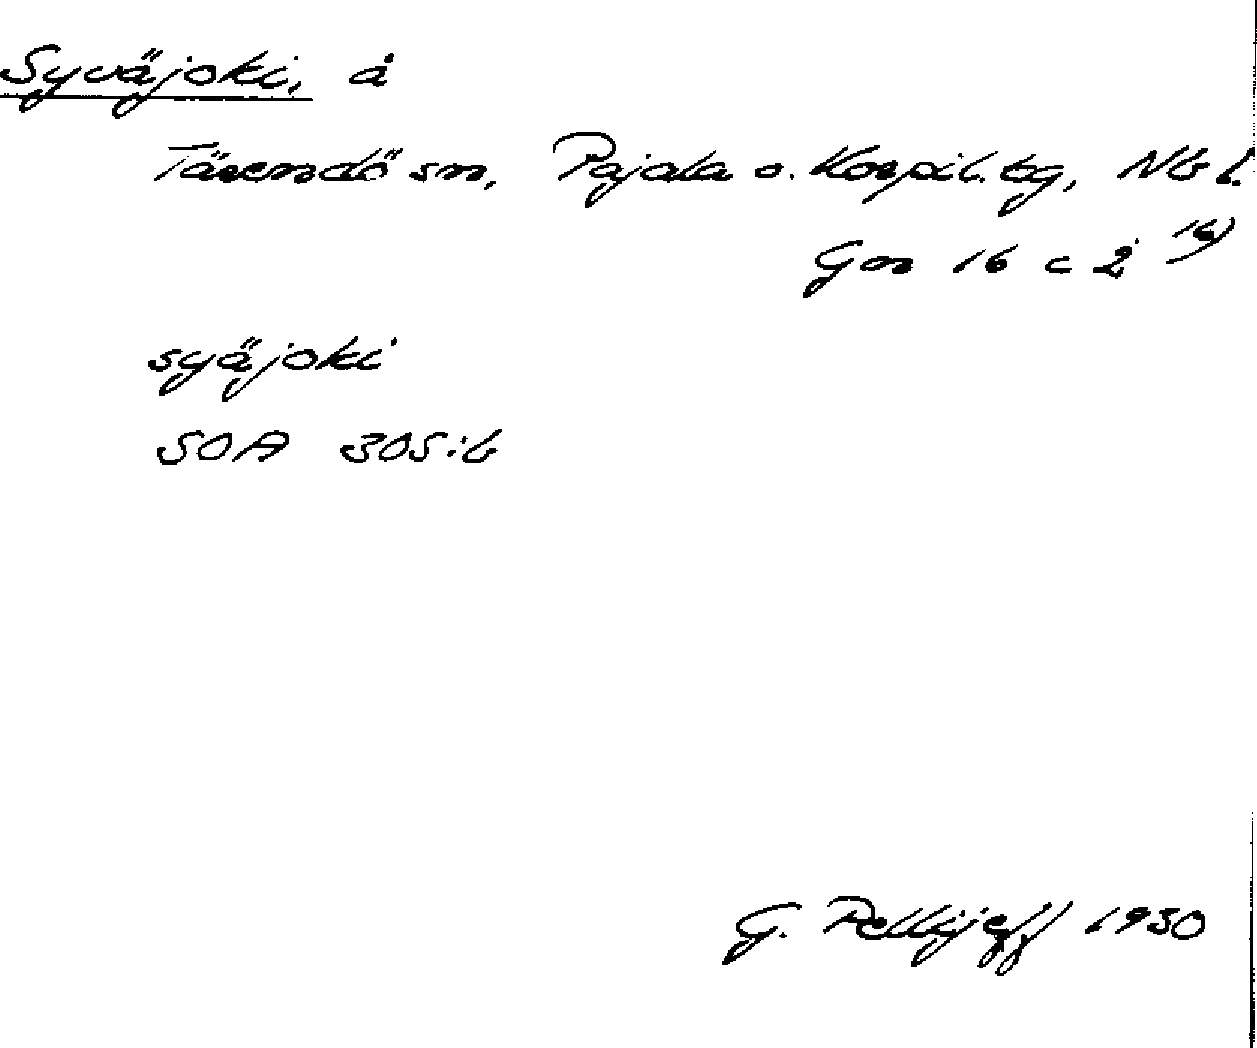 Syväjoki, å
Tärendö sn, Pajala o. Korpil. tg, Nb l.
Gor 16 c 2 16)
syäjoki
SOA 305:b
G. Pellijeff 1930